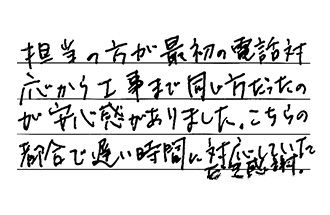 担当の方が最初の電話対
応から工事まで同じ方だったの
が安心感がありました。こちらの
都合で遅い時間に対応していた
感謝。